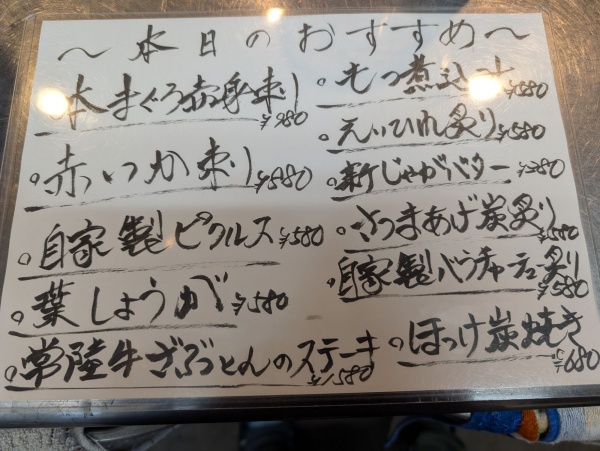 ～本日のおすすめ～
。本まぐろ赤身刺し ¥980
。赤いか刺し ¥580
。自家製ピクルス ¥580
。葉しょうが ¥580
。常陸牛ざぶとんのステーキ ¥1580
。もつ煮込み ¥580
。えいひれ炙り ¥580
。新じゃがバター ¥580
。さつまあげ炭炙り ¥580
。自家製パンチェッタ炙り ¥580
。ほっけ炭焼き ¥680